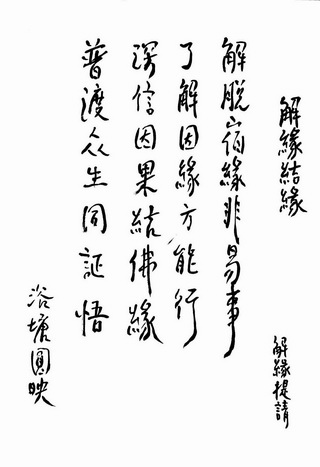 解緣結緣
解緣提請
解脫宿緣非易事
了解因緣方能行
深信因果結佛緣
普渡眾生同証悟
浴塘圓映